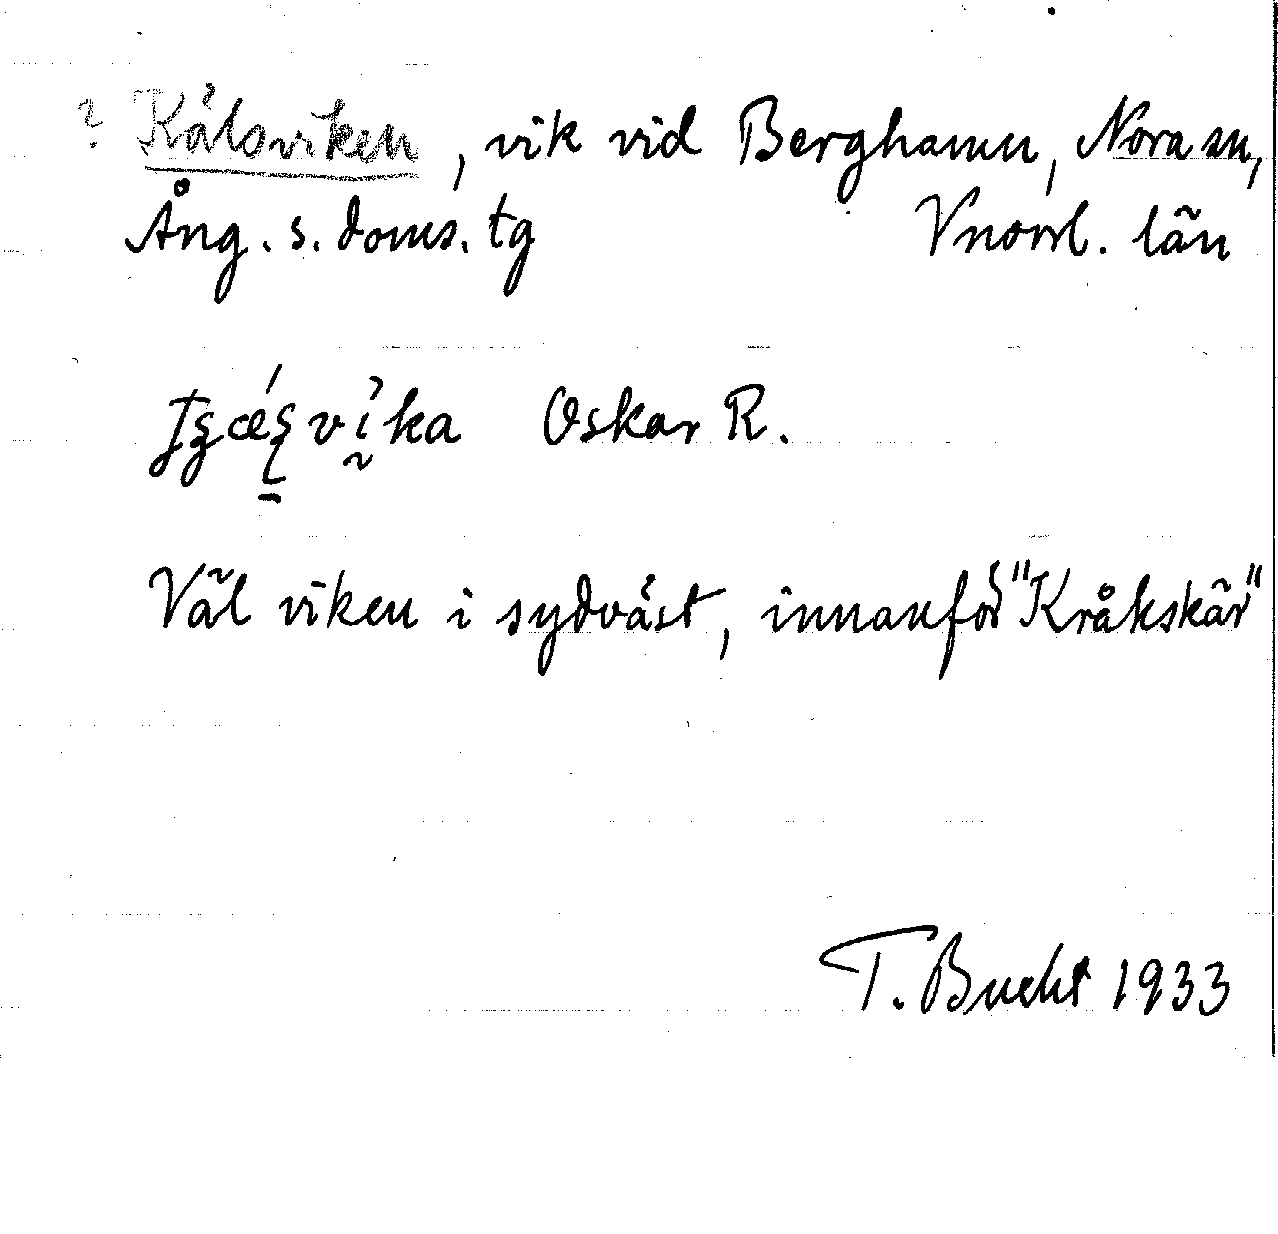 ? Kälsviken, vik vid Berghamn, Nora sn,
Ång. s. doms. tg Vnorrl. län
vika Oskar R.
Väl viken i sydväst, innanför "Kråkskär"
T. Bucht 1933